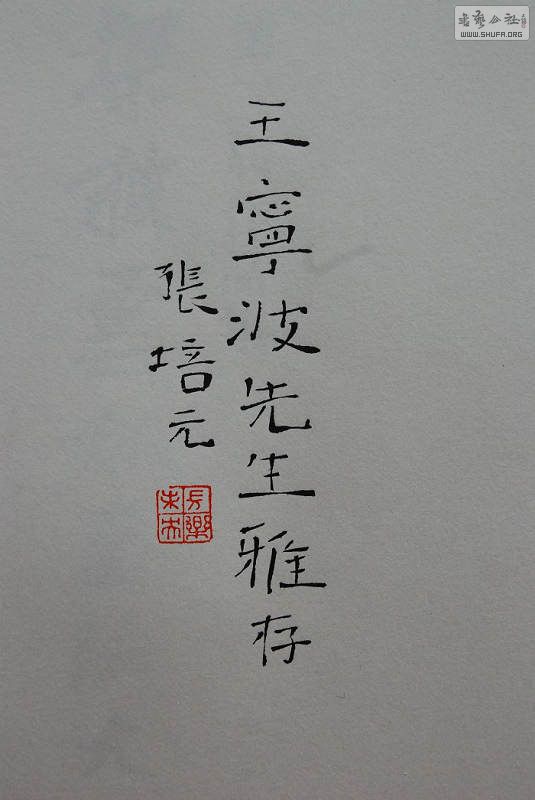 王寧波先生雅存
張培元
长樂未央
書藝公社
WWW.SHUFA.ORG